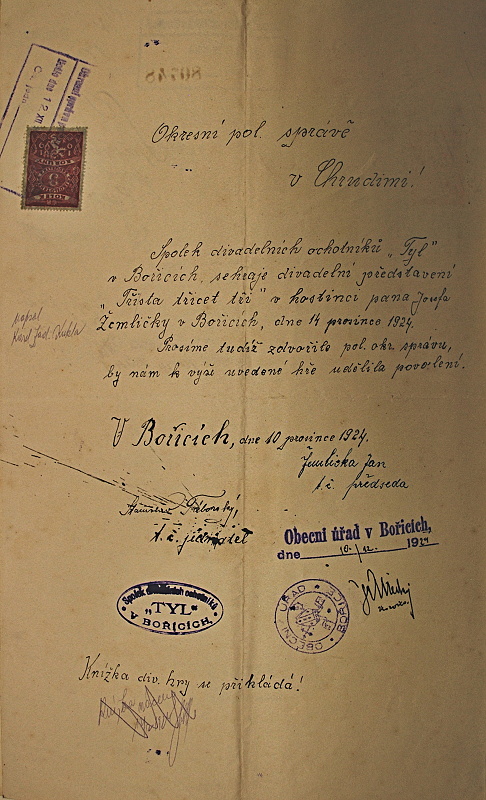 80748
12 XII
Okresní pol. správě
v Chrudimi!
Spolek divadelních ochotníků „Tyl"
v Bořicích, sehraje divadelní představení
„Třista třicet tři" v hostinci pana Josefa
Žemličky v Bořicích, dne 14 prosince 1924.
Prosíme tudíž zdvořile pol. okr. správu,
by nám k výši uvedené hře udělila povolení.
napsal
Karel
V Bořicích, dne 10 prosince 1924.
Žemlička Jan
t. č. předseda
Stanislav
t. č. jednatel
Obecní úřad v Bořicích,
dne 10./12. 1924
Spolek divadelních ochotníků
„TYL"
V BOŘICÍCH.
OBECNÍ ÚŘAD BOŘICE
Knížka div. hry se přikládá!